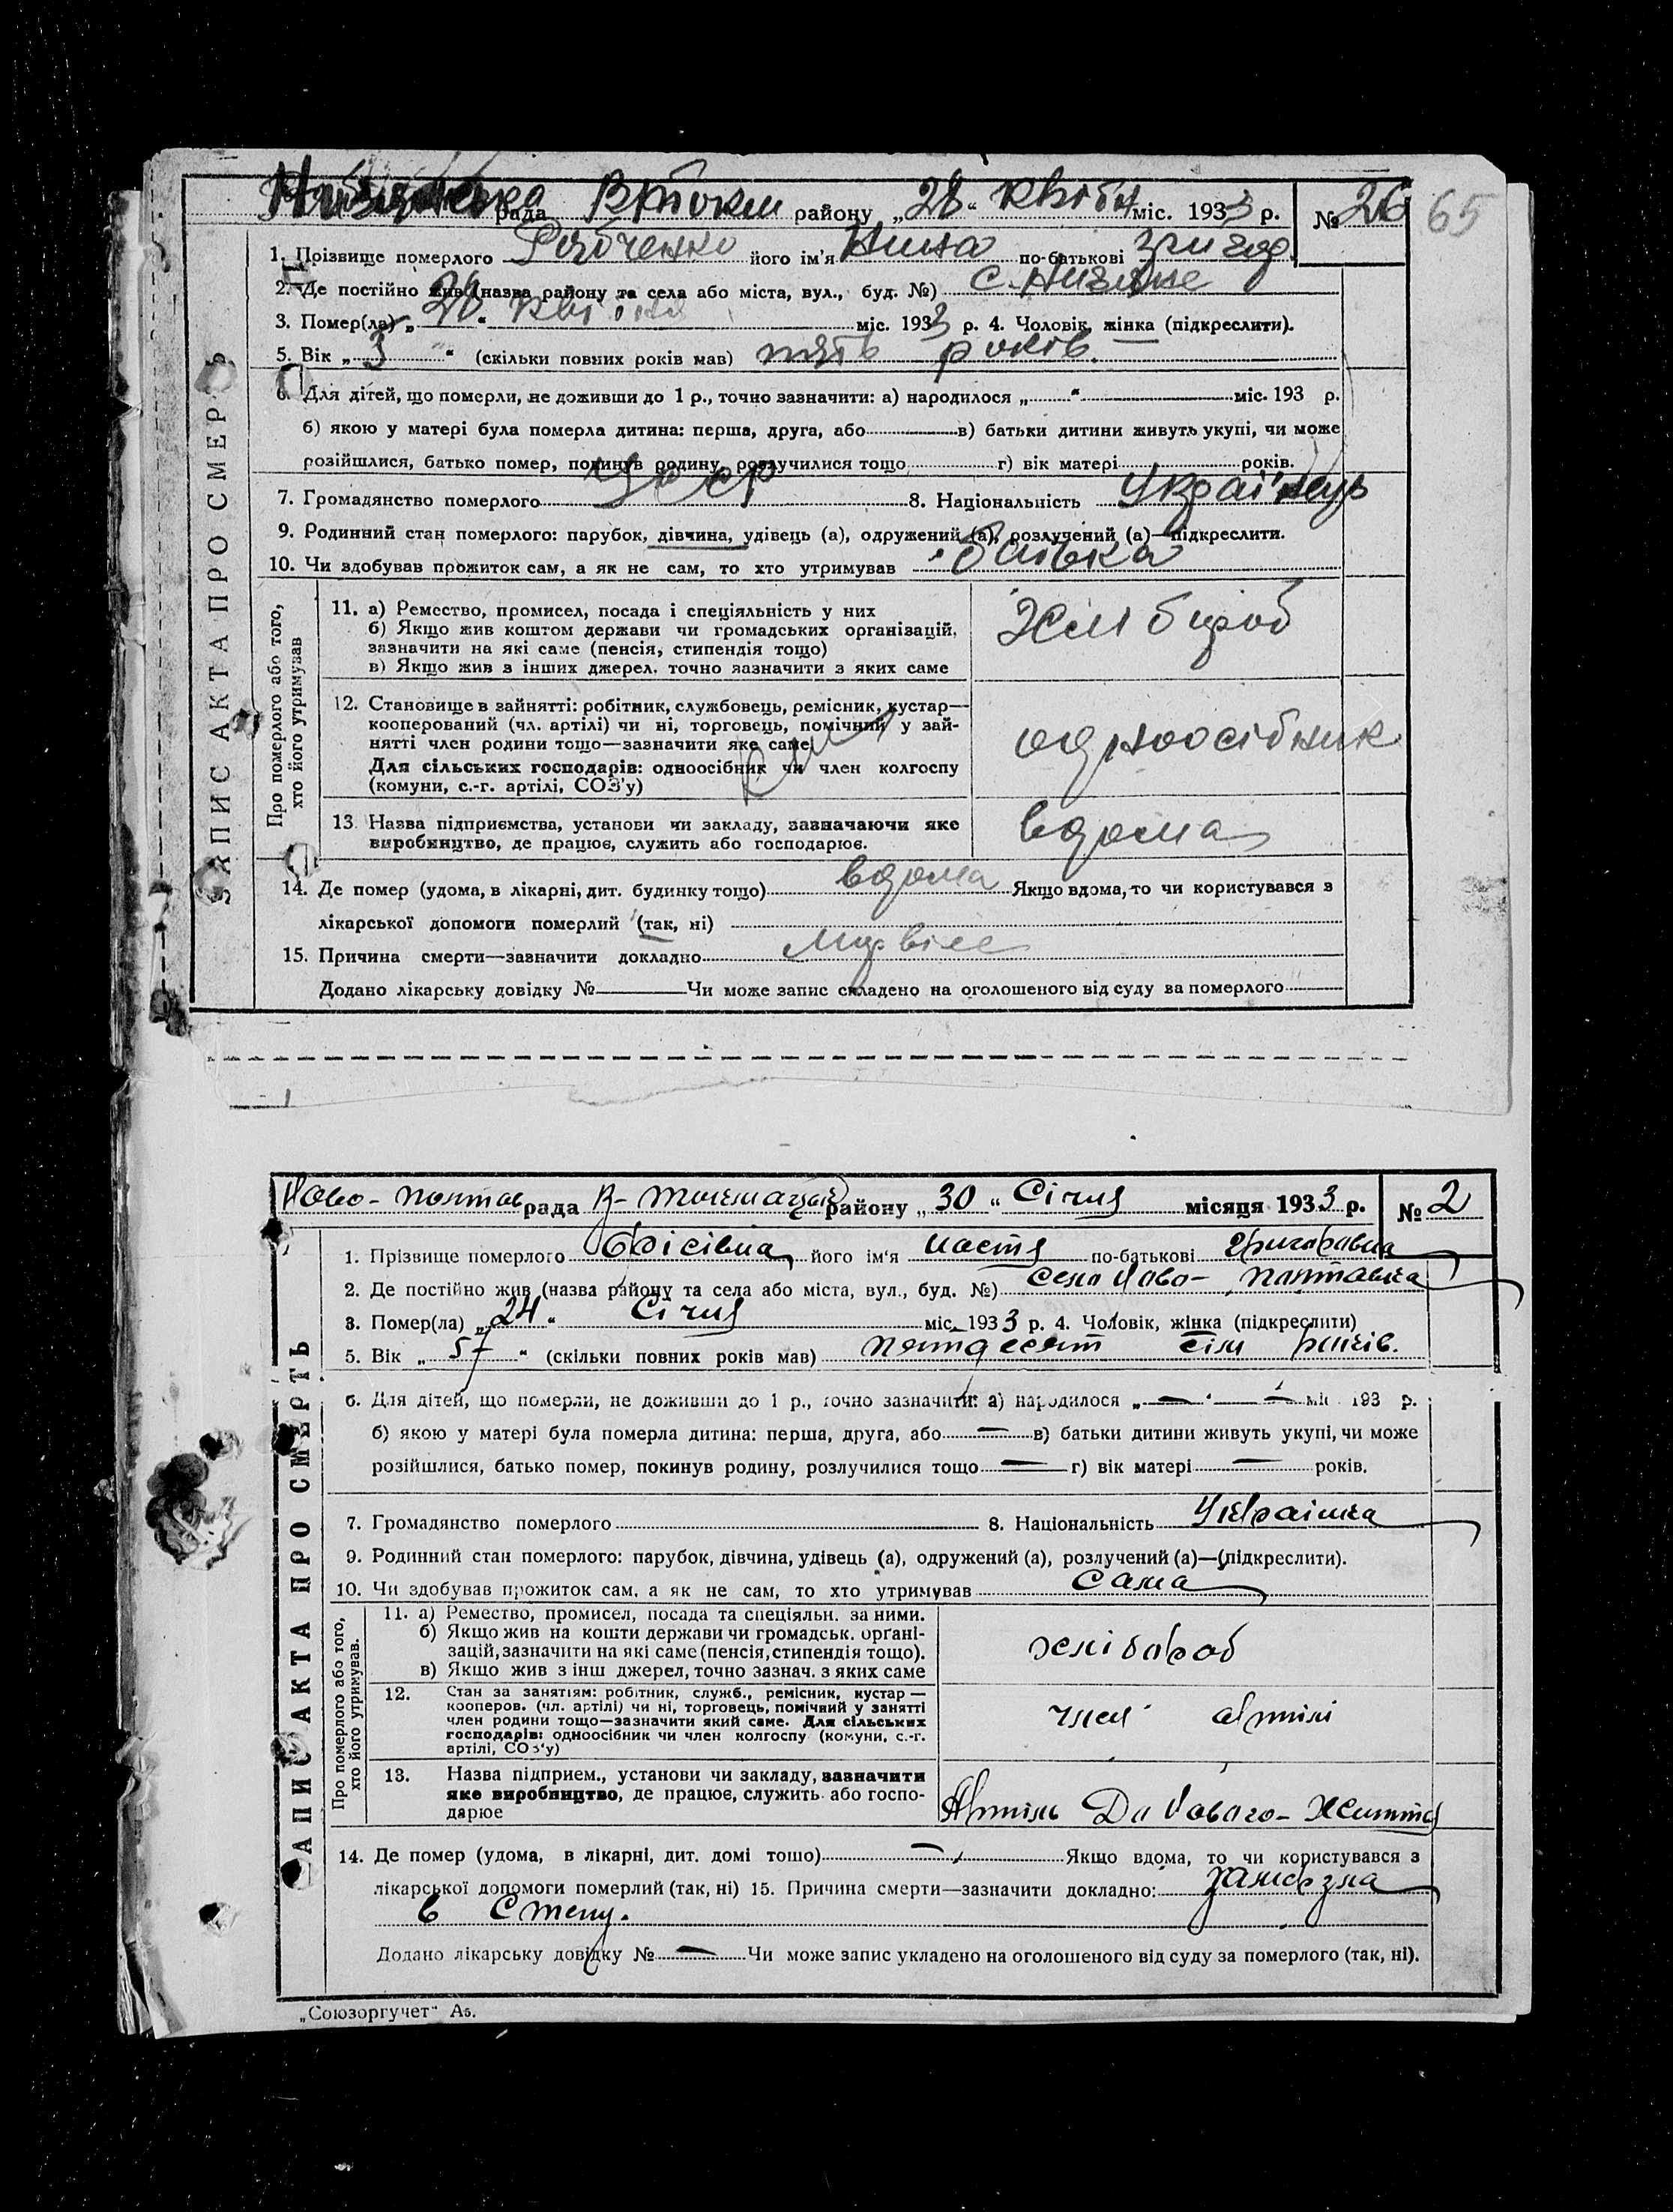 рада В Токм району „28“ Квітн міс. 1933 р. № 26 65
1. Прізвище померлого Рябченко його ім'я Нина по-батькові Григор.
2. Де постійно жив (назва району та села або міста, вул., буд. №) с.
3. Помер(ла) „28“ Квітня міс. 1933 р. 4. Чоловік, жінка (підкреслити).
5. Вік „ “ (скільки повних років мав) пять років.
6. Для дітей, що померли, не доживши до 1 р., точно зазначити: а) народилося „ “ міс. 193 р.
б) якою у матері була померла дитина: перша, друга, або в) батьки дитини живуть укупі, чи може
розійшлися, батько помер, покинув родину, розлучилися тощо г) вік матері років.
7. Громадянство померлого Усср 8. Національність Українець
9. Родинний стан померлого: парубок, дівчина, удівець (а), одружений (а), розлучений (а)—підкреслити.
10. Чи здобував прожиток сам, а як не сам, то хто утримував батька
ЗАПИС АКТА ПРО СМЕРТЬ
Про померлого або того, хто його утримував
11. а) Ремество, промисел, посада і спеціяльність у них
б) Якщо жив коштом держави чи громадських організацій,
зазначити на які саме (пенсія, стипендія тощо)
в) Якщо жив з інших джерел, точно зазначити з яких саме
Хлібороб
12. Становище в зайнятті: робітник, службовець, ремісник, кустар—
кооперований (чл. артілі) чи ні, торговець, помічний у зай-
нятті член родини тощо—зазначити яке саме
Для сільських господарів: одноосібник чи член колгоспу
(комуни, с.-г. артілі, СОЗ'у)
одноосібник
13. Назва підприємства, установи чи закладу, зазначаючи яке
виробництво, де працює, служить або господарює.
вдома
14. Де помер (удома, в лікарні, дит. будинку тощо) вдома Якщо вдома, то чи користувався з
лікарської допомоги померлий (так, ні)
15. Причина смерти—зазначити докладно
Додано лікарську довідку № Чи може запис складено на оголошеного від суду за померлого
Ново-Полтав рада В-Токмацьк району „30“ Січня місяця 1933 р. № 2
1. Прізвище померлого його ім'я Настя по-батькові Григоравна
2. Де постійно жив (назва району та села або міста, вул., буд. №) село Ново-Полтавка
3. Помер(ла) „24“ Січня міс. 1933 р. 4. Чоловік, жінка (підкреслити)
5. Вік „57“ (скільки повних років мав) пятдесят сім років.
6. Для дітей, що померли, не доживши до 1 р., точно зазначити: а) народилося „—“ — міс 193 р.
б) якою у матері була померла дитина: перша, друга, або — в) батьки дитини живуть укупі, чи може
розійшлися, батько помер, покинув родину, розлучилися тощо — г) вік матері — років.
7. Громадянство померлого 8. Національність Українка
9. Родинний стан померлого: парубок, дівчина, удівець (а), одружений (а), розлучений (а)—(підкреслити).
10. Чи здобував прожиток сам, а як не сам, то хто утримував сама
АПИС АКТА ПРО СМЕРТЬ
Про померлого або того, хто його утримував.
11. а) Ремество, промисел, посада та спеціяльн. за ними.
б) Якщо жив на кошти держави чи громадськ. органі-
зацій, зазначити на які саме (пенсія, стипендія тощо).
в) Якщо жив з інш джерел, точно зазнач. з яких саме
хлібороб
12. Стан за занятіям: робітник, служб., ремісник, кустар—
кооперов. (чл. артілі) чи ні, торговець, помічний у занятті
член родини тощо—зазначити який саме. Для сільських
господарів: одноосібник чи член колгоспу (комуни, с.-г.
артілі, СОЗ'у)
член артілі
13. Назва підприєм., установи чи закладу, зазначити
яке виробництво, де працює, служить або госпо-
дарює
Артіль До Новаго-Життя
14. Де помер (удома, в лікарні, дит. домі тошо) — Якщо вдома, то чи користувався з
лікарської допомоги померлий (так, ні) 15. Причина смерти—зазначити докладно: замерзла
в степу.
Додано лікарську довідку № — Чи може запис укладено на оголошеного від суду за померлого (так, ні).
„Союзоргучет“ А5.